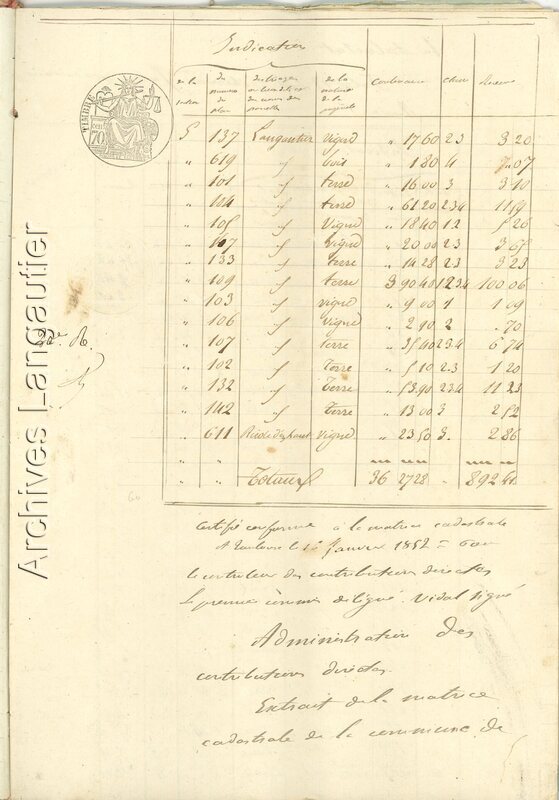 Indication
de la section
du numero du plan
de la nature de la propriété
Contenance
Classe
Revenu
TIMBRE
70
G 137 Langautier Vigne " 17 60 2.3 3 20
" 619 id bois " 1 80 4 " 07
" 101 id terre " 16 00 3 3 10
" 104 id terre " 61 20 2.3.4 11 59
" 105 id Vigne " 18 40 1.2 5 26
" 107 id Vigne " 20 00 2.3 3 65
" 133 id terre " 14 28 2.3 3 23
" 109 id terre 3 90 40 1.2.3.4 100 06
" 103 id vigne " 9 00 1 1 09
" 106 id Vigne " 2 10 2 " 70
" 107 id terre " 35 40 2.3.4 6 74
" 102 id Terre " 5 10 2.3 1 20
" 132 id Terre " 53 90 2.3.4 11 23
" 142 id Terre " 13 00 3 2 52
" 611 vigne " 23 50 3. 2 86
Totaux 36 27 28 " 892 61
Archives Langautier
Certifié conforme à la matrice cadastrale
A Toulouse le Janvier 1852 = pour
le controleur des contributions directes
le premier commis délégué. Vidal signé
Administration des
contributions directes.
Extrait de la matrice
cadastrale de la commune de